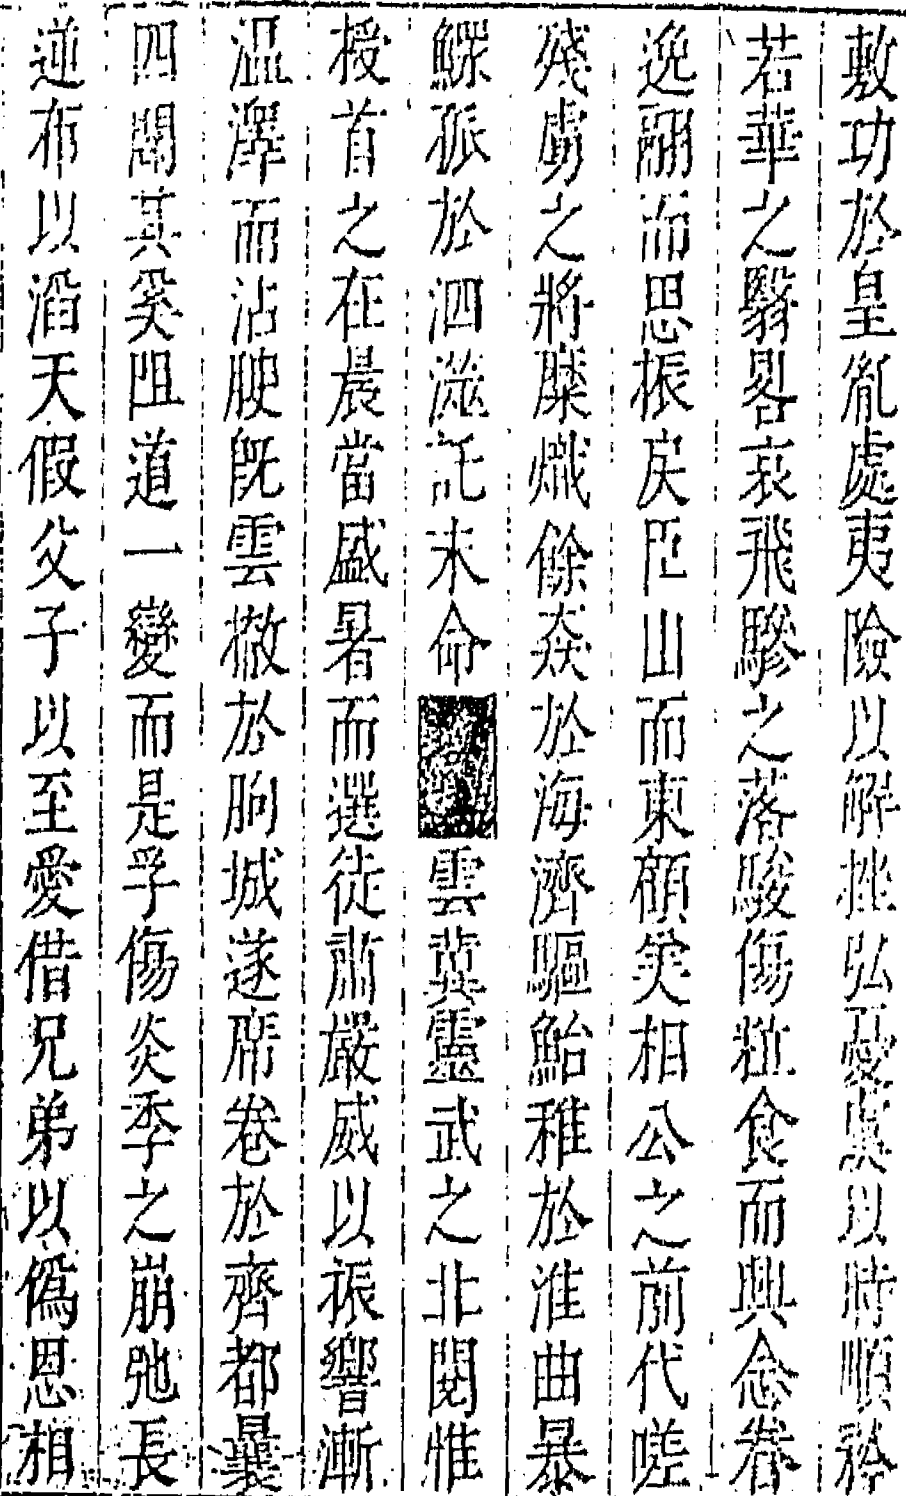 敷功於皇胤處夷險以解挫弘憂虞以時順矜
若華之翳晷哀飛驂之落駿傷粒食而興念眷
逸翮而思振戾臣山而東顧美相公之前代嗟
殘虜之將糜熾餘猋於海濟驅鮐稚於淮曲暴
鰥孤於泗澨託末命雲冀靈武之北閱惟
授首之在晨當盛暑而選徒肅嚴威以振響漸
溫澤而沾腴旣雲撤於朐城遂席卷於齊都曩
四關其奚阻道一變而是孚傷炎季之崩弛長
逆布以滔天假父子以至愛借兄弟以僞恩相